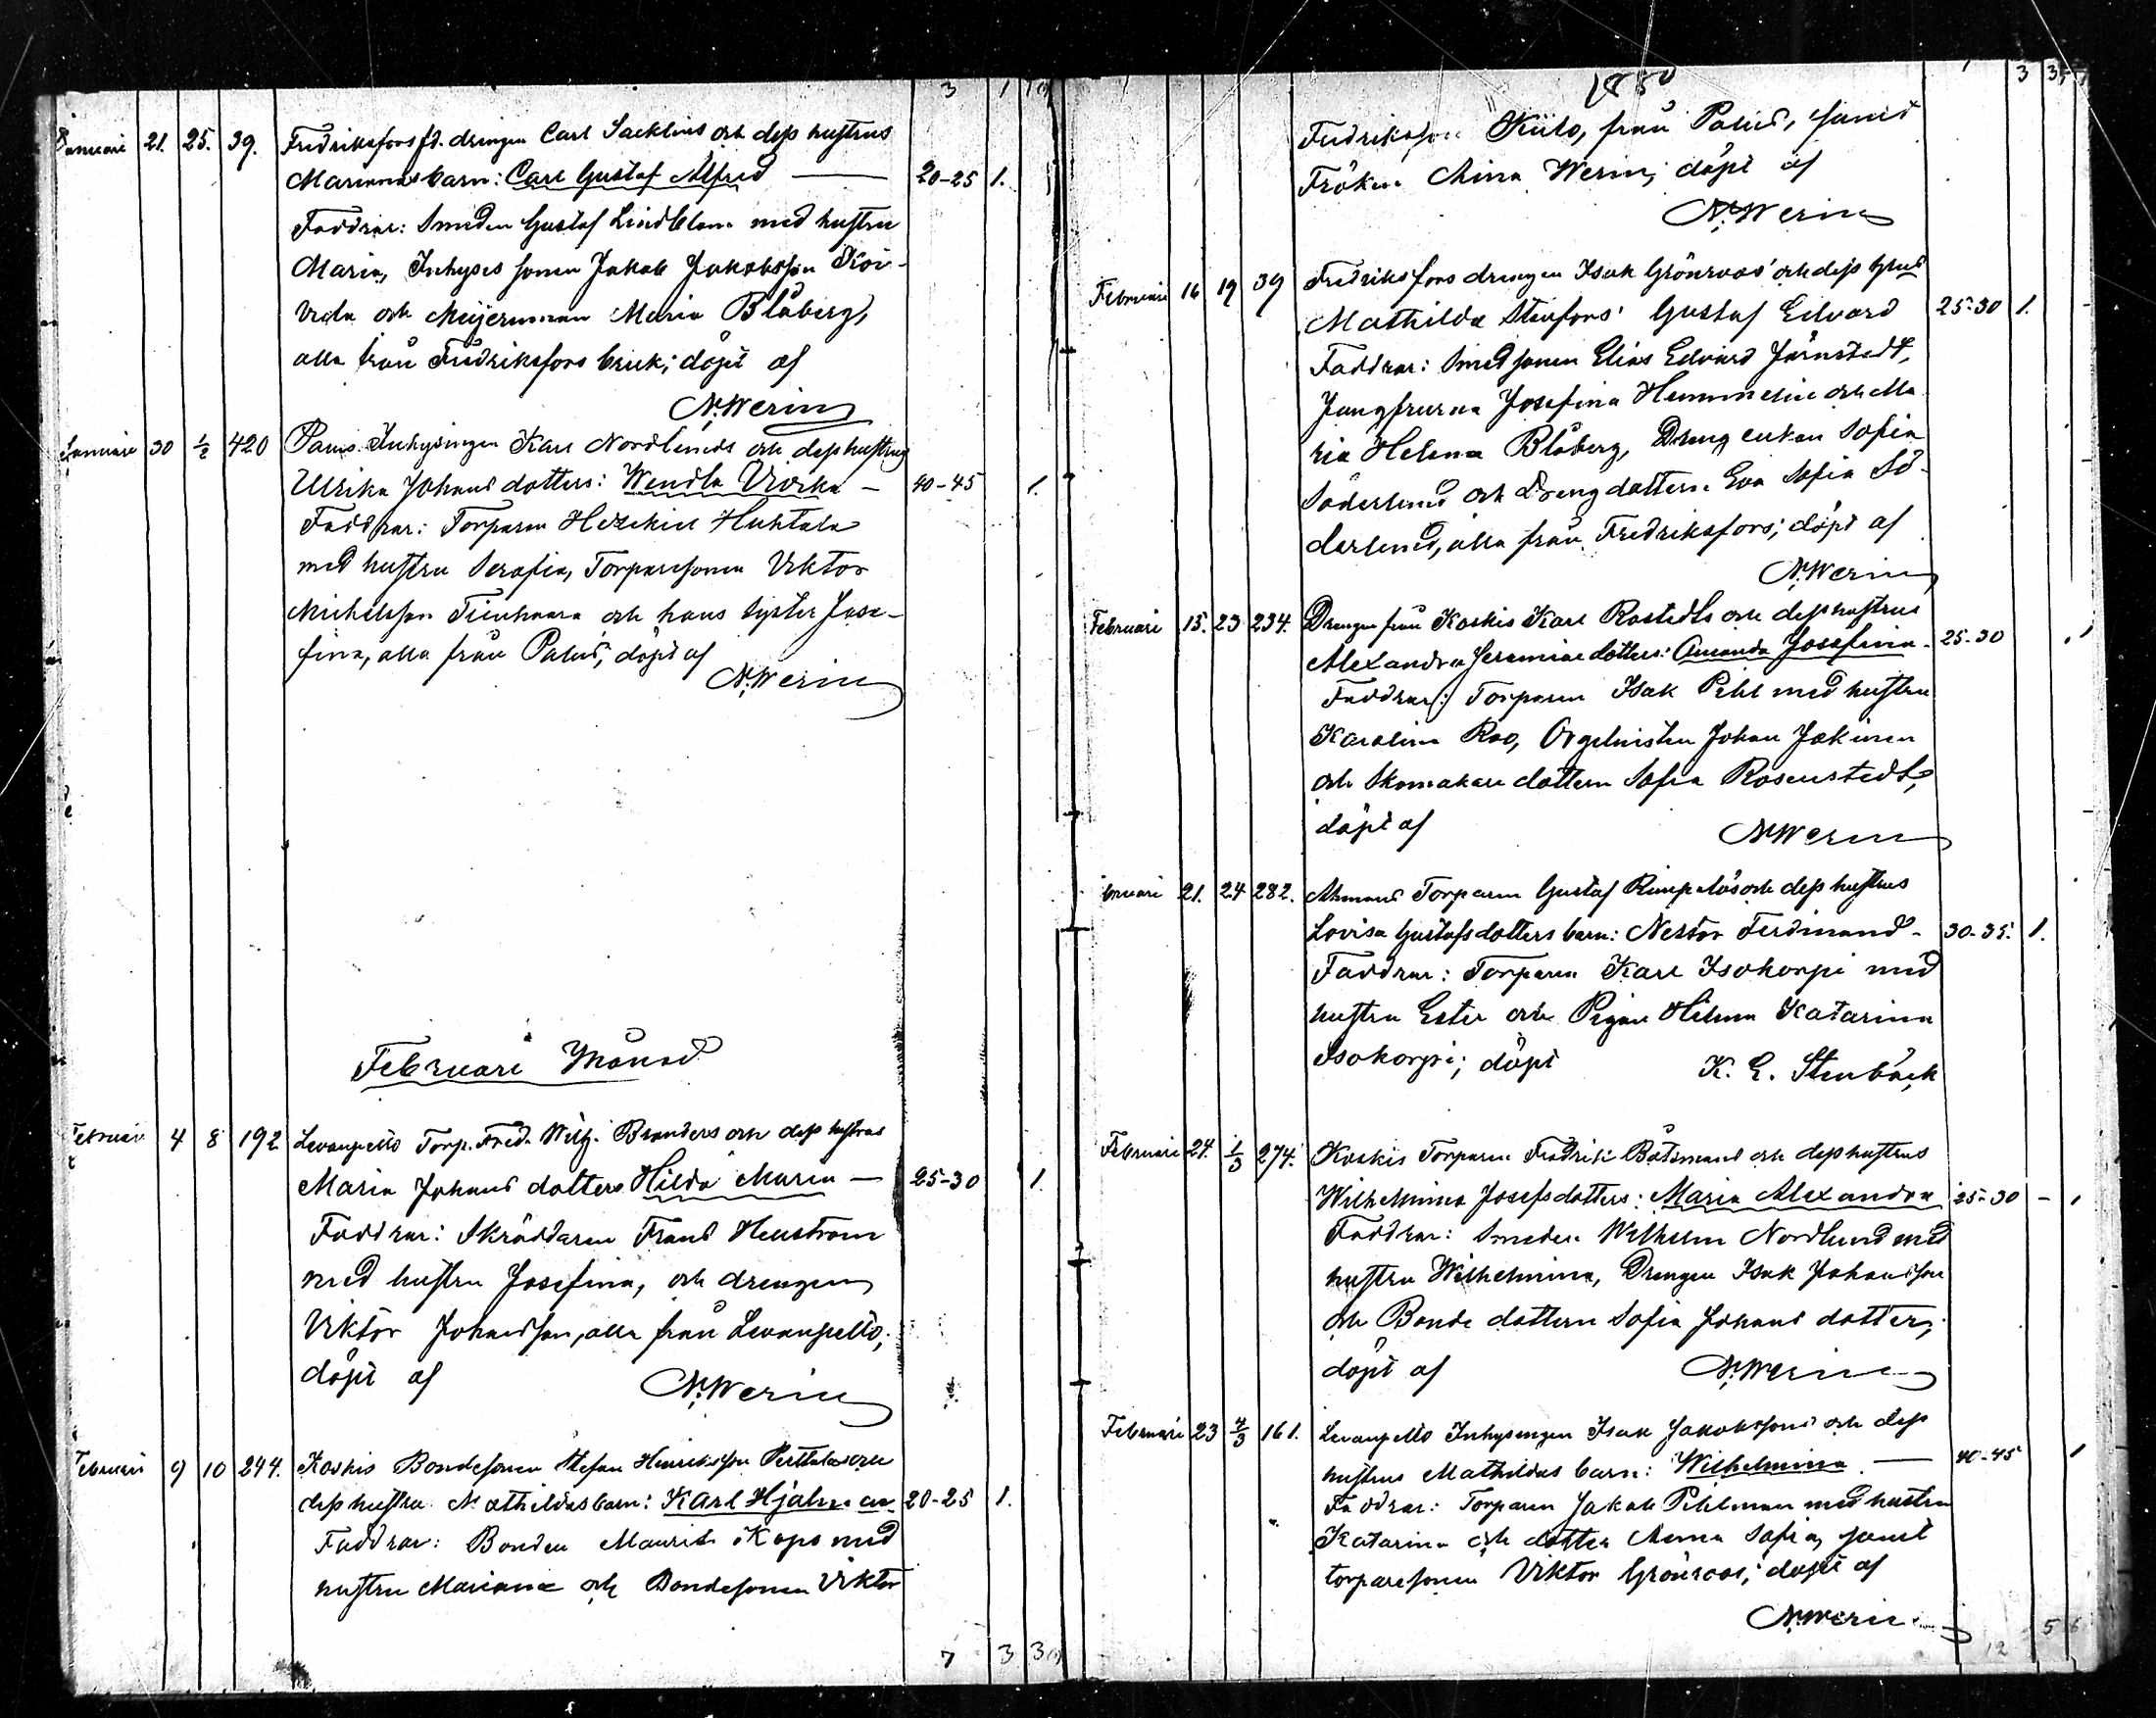 3 1 1
Januari 21. 25. 39. Fredriksfors fd. drengen Carl Sacklins och dess hustrus
Marianas barn: Carl Gustaf Alfred — 20-25 1.
Faddrar: Smeden Gustaf Lindblom med hustru
Maria, Inhyses sonen Jakob Jakobsson Koi-
vula och Meijerinnan Maria Blåberg,
alla från Fredriksfors bruk; döpt af
N. Werin
Januari 30 1/2 420 Pavis Inhysingen Karl Nordlunds och dess hustrus
Ulrika Johansdotters: Wendla — 40-45 1.
Faddrar: Torparen Hezekiel Huhtala
med hustru Serafia, Torparesonen Viktor
Michelsson Tienhaara och hans syster Jose-
fina, alla från Palus; döpt af
N. Werin
Februari Månad
Februari 4 8 192 Levanpelto Torp. Fred. Wilh. Branders och dess hustrus
Maria Johansdotters Hilda Maria — 25-30 1.
Faddrar: Skräddaren Frans Hellström
med hustru Josefina, och drengen
Viktor Johansson, alla från Levanpelto;
döpt af N. Werin
Februari 9 10 244. Koskis Bondesonen Stefan Henriksson Perttulas och
dess hustru Mathildas barn: Karl Hjalmar 20-25 1.
Faddrar: Bonden Maurits Kops med
hustru Mariana och Bondesonen Viktor
7 3 3
1880
3 3
Fredriksson Kiilo, från Palus, samt
Fröken Mina Werin; döpt af
N. Werin
Februari 16 19 39 Fredriksfors drengen Isak Grönroos' och dess hustrus
Mathilda Stenfors' Gustaf Edvard 25-30 1.
Faddrar: Smedsonen Elias Edvard Järnstedt,
Jungfrurna Josefina Hemmelin och Ma
ria Helena Blåberg, Dreng enkan Sofia
Söderlund och Drengdottern Eva Sofia Sö-
derlund, alla från Fredriksfors; döpt af
N. Werin
Februari 15. 23 234. Drengen från Koskis Karl Rostedts och dess hustrus
Alexandra Jeremiaedotters: Amanda Josefina. 25-30 1
Faddrar: Torparen Isak Pihl med hustru
Karolina Roo, Orgelnisten Johan Jokinen
och Skomakaredottern Sofia Rosenstedt,
döpt af N. Werin
bruari 21. 24 282. Ahmaus Torparen Gustaf Rimpeläs och dess hustrus
Lovisa Gustafsdotters barn: Nestor Ferdinand - 30-35. 1.
Faddrar: Torparen Karl Isokorpi med
hustru Ester och Pigan Hilma Katarina
Isokorpi; döpt K. E. Stenbäck
Februari 24. 1/3 274. Koskis Torparen Fredrik Båtsmans och dess hustrus
Wilhelmina Josefsdotters: Maria Alexandra 25-30 - 1
Faddrar: Smeden Wilhelm Nordlund med
hustru Wilhelmina, Drengen Isak Johansson
och Bonde dottern Sofia Johans dotter;
döpt af N. Werin
Februari 23 4/3 161. Levanpelto Inhysingen Isak Jakobssons och dess
hustrus Mathildas barn: Wilhelmina — 40-45 1
Faddrar: Torparen Jakob Pihlman med hustru
Katarina och dotter Anna Sofia, samt
torparesonen Viktor Grönroos; döpt af
N. Werin
12 5 6